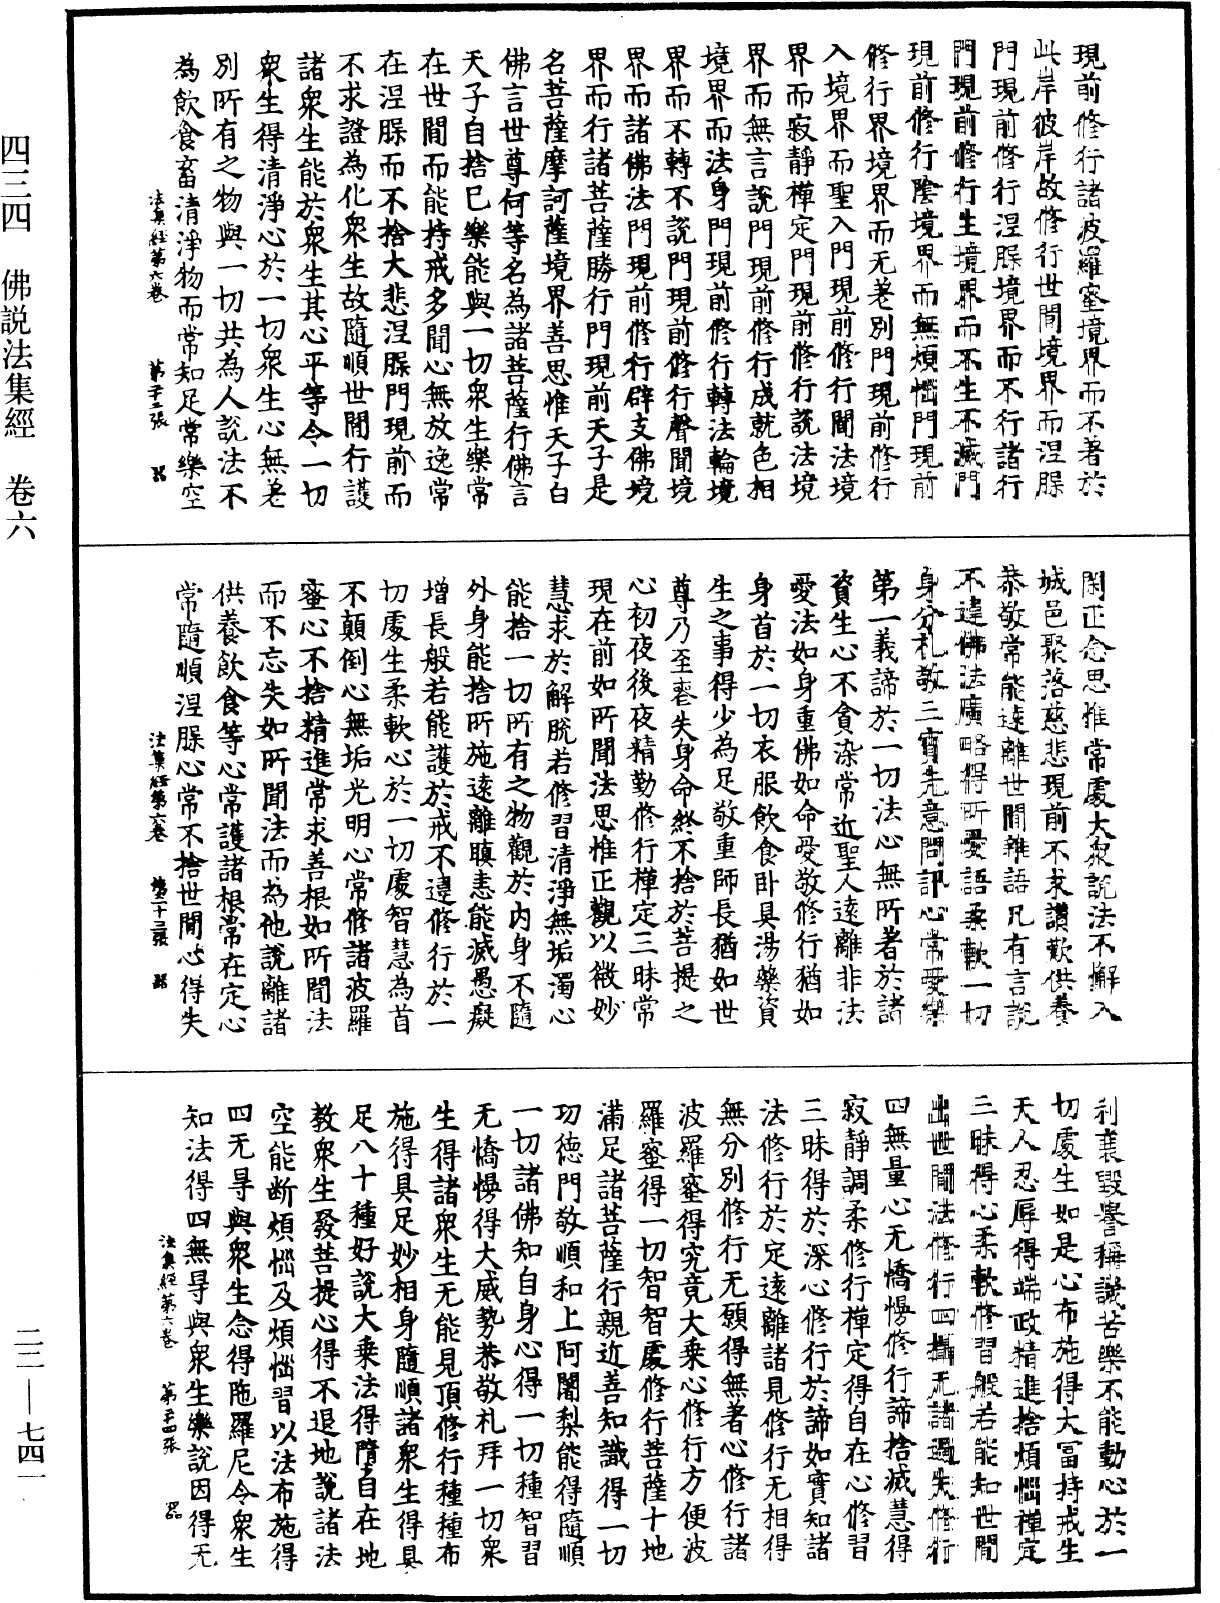 四三四　佛説法集經　卷六
現前修行諸波羅蜜境界而不著於
此岸彼岸故修行世間境界而涅槃
門現前修行涅槃境界而不行諸行
門現前修行生境界而不生不滅門
現前修行陰境界而無煩惱門現前
修行界境界而无差別門現前修行
入境界而聖入門現前修行聞法境
界而寂靜禪定門現前修行說法境
界而無言說門現前修行成就色相
境界而法身門現前修行轉法輪境
界而不轉不說門現前修行聲聞境
界而諸佛法門現前修行辟支佛境
界而行諸菩薩勝行門現前天子是
名菩薩摩訶薩境界善思惟天子白
佛言世尊何等名為諸菩薩行佛言
天子自捨己樂能與一切衆生樂常
在世間而能持戒多聞心無放逸常
在涅槃而不捨大悲涅槃門現前而
不求證為化衆生故隨順世間行護
諸衆生能於衆生其心平等令一切
衆生得清淨心於一切衆生心無差
別所有之物與一切共為人說法不
為飲食畜清淨物而常知足常樂空
法集經第六卷　第二十二張　器
閑正念思惟常處大衆說法不懈入
城邑聚落慈悲現前不求讚歎供養
恭敬常能遠離世間雜語凡有言說
不違佛法廣略得所愛語柔軟一切
身分札敬三寶先意問訊心常愛樂
第一義諦於一切法心無所著於諸
資生心不貪染常近聖人遠離非法
愛法如身重佛如命愛敬修行猶如
身首於一切衣服飲食卧具湯藥資
生之事得少為足敬重師長猶如世
尊乃至喪失身命終不捨於菩提之
心初夜後夜精勤修行禪定三昧常
現在前如所聞法思惟正觀以微妙
慧求於解脫若修習清淨無垢濁心
能捨一切所有之物觀於内身不隨
外身能捨所施遠離瞋恚能滅愚癡
增長般若能護於戒不違修行於一
切處生柔軟心於一切處智慧為首
不顛倒心無垢光明心常修諸波羅
蜜心不捨精進常求善根如所聞法
而不忘失如所聞法而為他說離諸
供養飲食等心常護諸根常在定心
常隨順涅槃心常不捨世間心得失
法集經第六卷　第二十三張　器
利衰毀譽稱譏苦樂不能動心於一
切處生如是心布施得大富持戒生
天人忍辱得端政精進捨煩惱禪定
三昧得心柔軟修習般若能知世間
出世間法修行四攝无諸過失修行
四無量心无憍慢修行諦捨滅慧得
寂靜調柔修行禪定得自在心修習
三昧得於深心修行於諦如實知諸
法修行於定遠離諸見修行无相得
無分別修行无願得無著心修行諸
波羅蜜得究竟大乘心修行方便波
羅蜜得一切智智處修行菩薩十地
滿足諸菩薩行親近善知識得一切
功德門敬順和上阿闍梨能得隨順
一切諸佛知自身心得一切種智習
无憍慢得大威勢恭敬札拜一切衆
生得諸衆生无能見頂修行種種布
施得具足妙相身隨順諸衆生得具
足八十種好說大乘法得隨自在地
教衆生發菩提心得不退地說諸法
空能断煩惱及煩惱習以法布施得
四无㝵與衆生念得陁羅尼令衆生
知法得四無㝵與衆生樂說因得无
法集經第六卷　第二十四張　器
二二—七四一